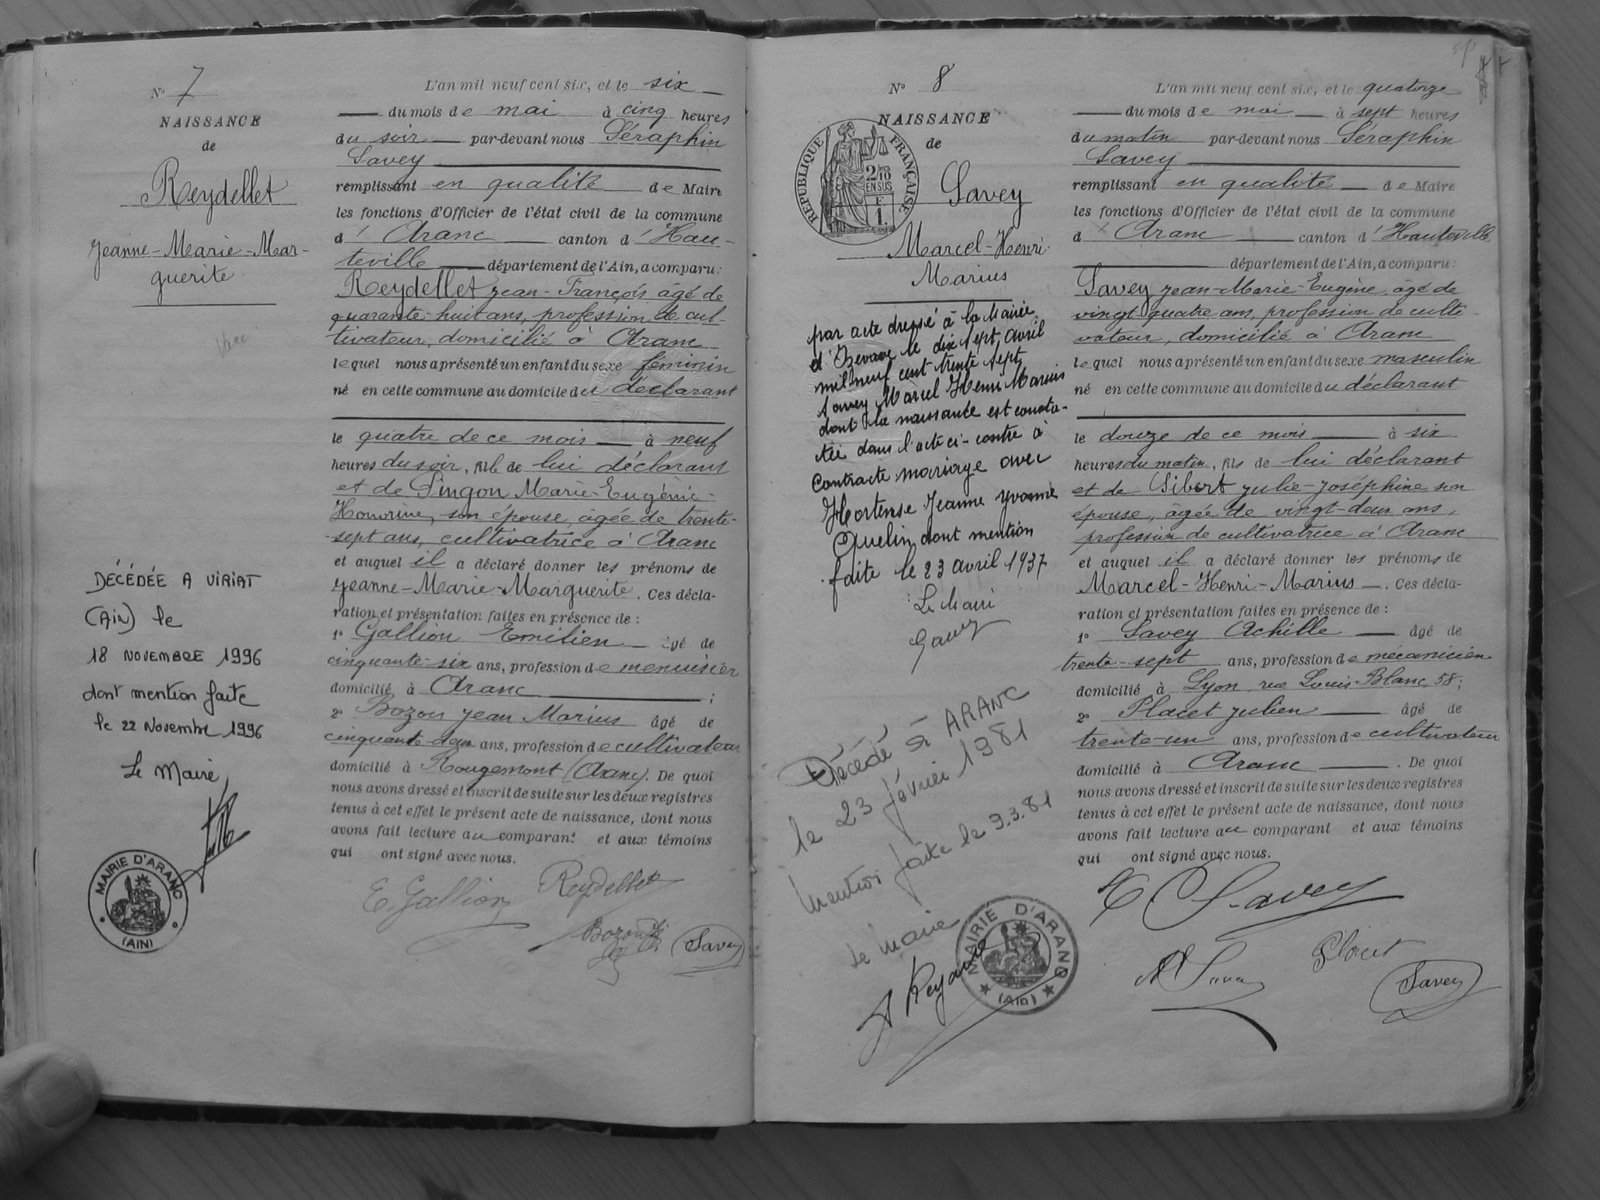 N° 7
NAISSANCE
de
Reydellet
Jeanne-Marie-Mar-
guerite
DÉCÉDÉE A VIRIAT
(Ain) le
18 NOVEMBRE 1996
dont mention faite
le 22 Novembre 1996
Le Maire
MAIRIE D'ARANC
(AIN)
L'an mil neuf cent six, et le six
du mois de mai à cinq heures
du soir par-devant nous Séraphin
Savey
remplissant en qualité de Maire
les fonctions d'Officier de l'état civil de la commune
d' Aranc canton d' Hau-
teville département de l'Ain, a comparu:
Reydellet Jean-François, âgé de
quarante-huit ans, profession de cul-
tivateur, domicilié à Aranc
lequel nous a présenté un enfant du sexe féminin
né en cette commune au domicile du déclarant
le quatre de ce mois à neuf
heures du soir, fils de lui déclarant
et de Pingon Marie-Eugénie-
Honorine, son épouse, âgée de trente-
sept ans, cultivatrice à Aranc
et auquel il a déclaré donner les prénoms de
Jeanne-Marie-Marguerite. Ces décla-
ration et présentation faites en présence de :
1° Gallion Emilien âgé de
cinquante-six ans, profession de menuisier
domicilié à Aranc ;
2° Bozon Jean Marius âgé de
cinquante ans, profession de cultivateur
domicilié à Rougemont (Aranc). De quoi
nous avons dressé et inscrit de suite sur les deux registres
tenus à cet effet le présent acte de naissance, dont nous
avons fait lecture au comparant et aux témoins
qui ont signé avec nous.
E. Gallion Reydellet
Bozon Savey
N° 8
NAISSANCE
de
RÉPUBLIQUE FRANÇAISE
2/10 EN SUS
Savey
Marcel-Henri-
Marius
par acte dressé à la Mairie
d'Izenave le dix sept avril
mil neuf cent trente sept
Savey Marcel Henri Marius
dont la naissance est consta-
tée dans l'acte ci-contre à
contracté mariage avec
Hortense Jeanne Yvonne
Quelin dont mention
faite le 23 avril 1937
Le Maire
Savey
Décédé à ARANC
le 23 février 1981
Mention faite le 9.3.81
Le Maire
MAIRIE D'ARANC
(Ain)
L'an mil neuf cent six, et le quatorze
du mois de mai à sept heures
du matin par-devant nous Séraphin
Savey
remplissant en qualité de Maire
les fonctions d'Officier de l'état civil de la commune
d' Aranc canton d' Hauteville
département de l'Ain, a comparu:
Savey Jean-Marie-Eugène, âgé de
vingt-quatre ans, profession de culti-
vateur, domicilié à Aranc
lequel nous a présenté un enfant du sexe masculin
né en cette commune au domicile du déclarant
le douze de ce mois à six
heures du matin, fils de lui déclarant
et de Sibert Julie-Joséphine son
épouse, âgée de vingt-deux ans,
profession de cultivatrice à Aranc
et auquel il a déclaré donner les prénoms de
Marcel-Henri-Marius. Ces décla-
ration et présentation faites en présence de :
1° Savey Achille âgé de
trente-sept ans, profession de mécanicien
domicilié à Lyon rue Louis-Blanc 58;
2° Placet Julien âgé de
trente-un ans, profession de cultivateur
domicilié à Aranc. De quoi
nous avons dressé et inscrit de suite sur les deux registres
tenus à cet effet le présent acte de naissance, dont nous
avons fait lecture au comparant et aux témoins
qui ont signé avec nous.
Savey
Placet
Savey